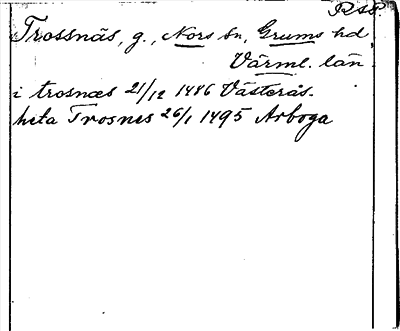 RAP.
Trossnäs, g., Nors sn, Grums hd
Värml. län
i trosnæs 21/12 1486 Västerås.
heta Trosnes 26/1 1495 Arboga